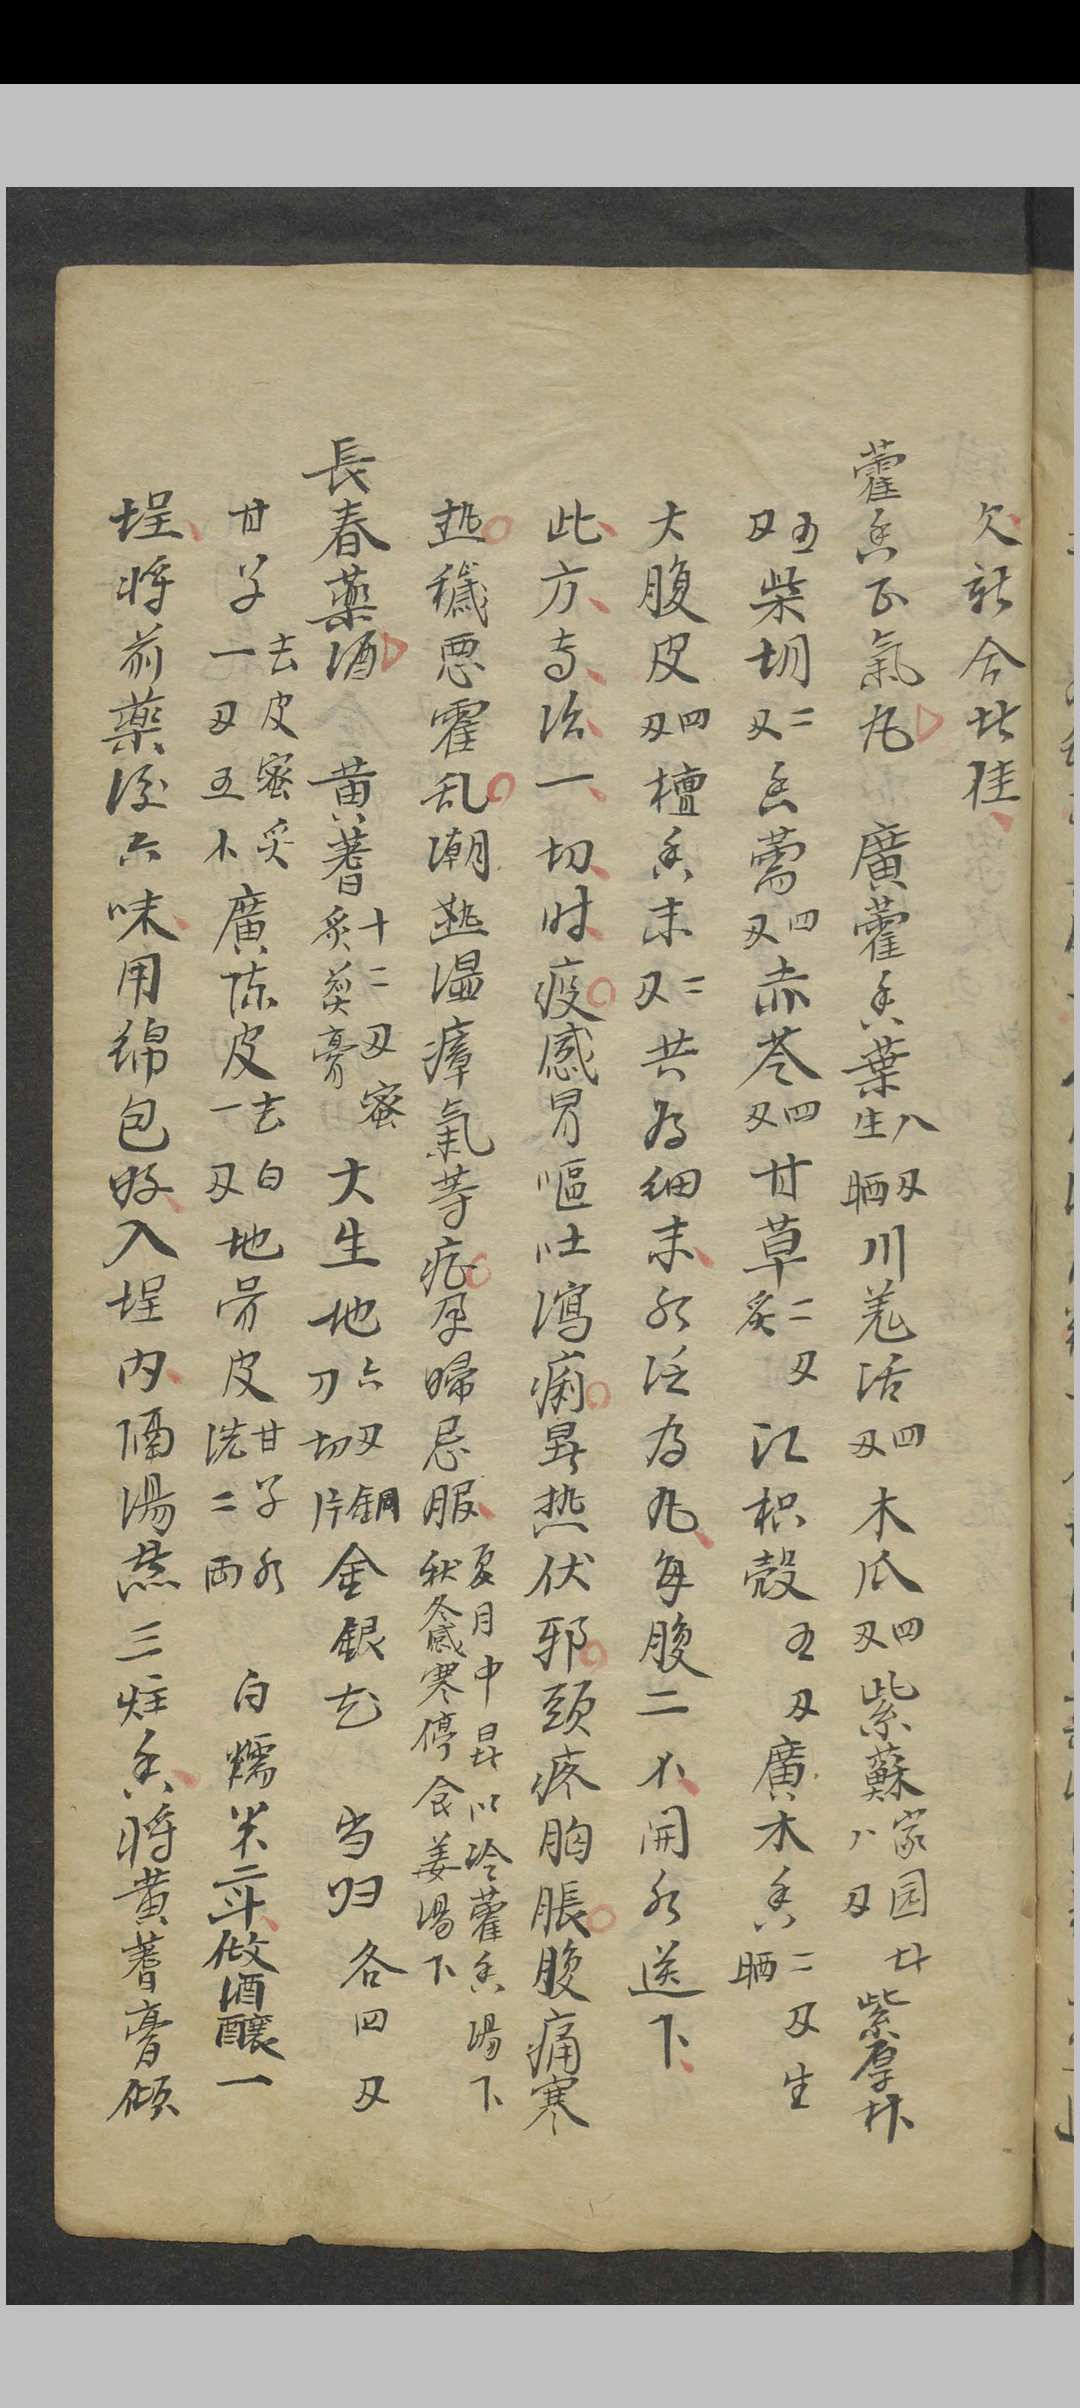 欠於今北佳
藿香正氣丸 廣藿香葉八刄生晒川羌活四刄木瓜四刄紫蘇家园八刄廿紫厚朴
五刄柴胡二刄香薷四刄赤苓四刄甘草二刄炙江枳殼五刄廣木香二刄生晒
大腹皮四刄檀香末二刄共為細末水泛為丸每腹二个開水送下
此方專治一切时疫感冒嘔吐瀉痢暑热伏邪頭疼胸脹腹痛寒
热穢悪霍乱潮热温瘴氣等症孕婦忌服夏月中暑以冷藿香湯下秋冬感寒停食姜湯下
長春藥酒 黄蓍十二刄蜜炙煎膏大生地六刄銅刀切片金銀花 当归各四刄
甘草去皮蜜炙一刄五小廣陳皮去白一刄地骨皮甘草水洗二兩 白糯米二斗做酒釀一
埕将前藥後六味用綿包好入埕内隔湯蒸三炷香将黄蓍膏傾